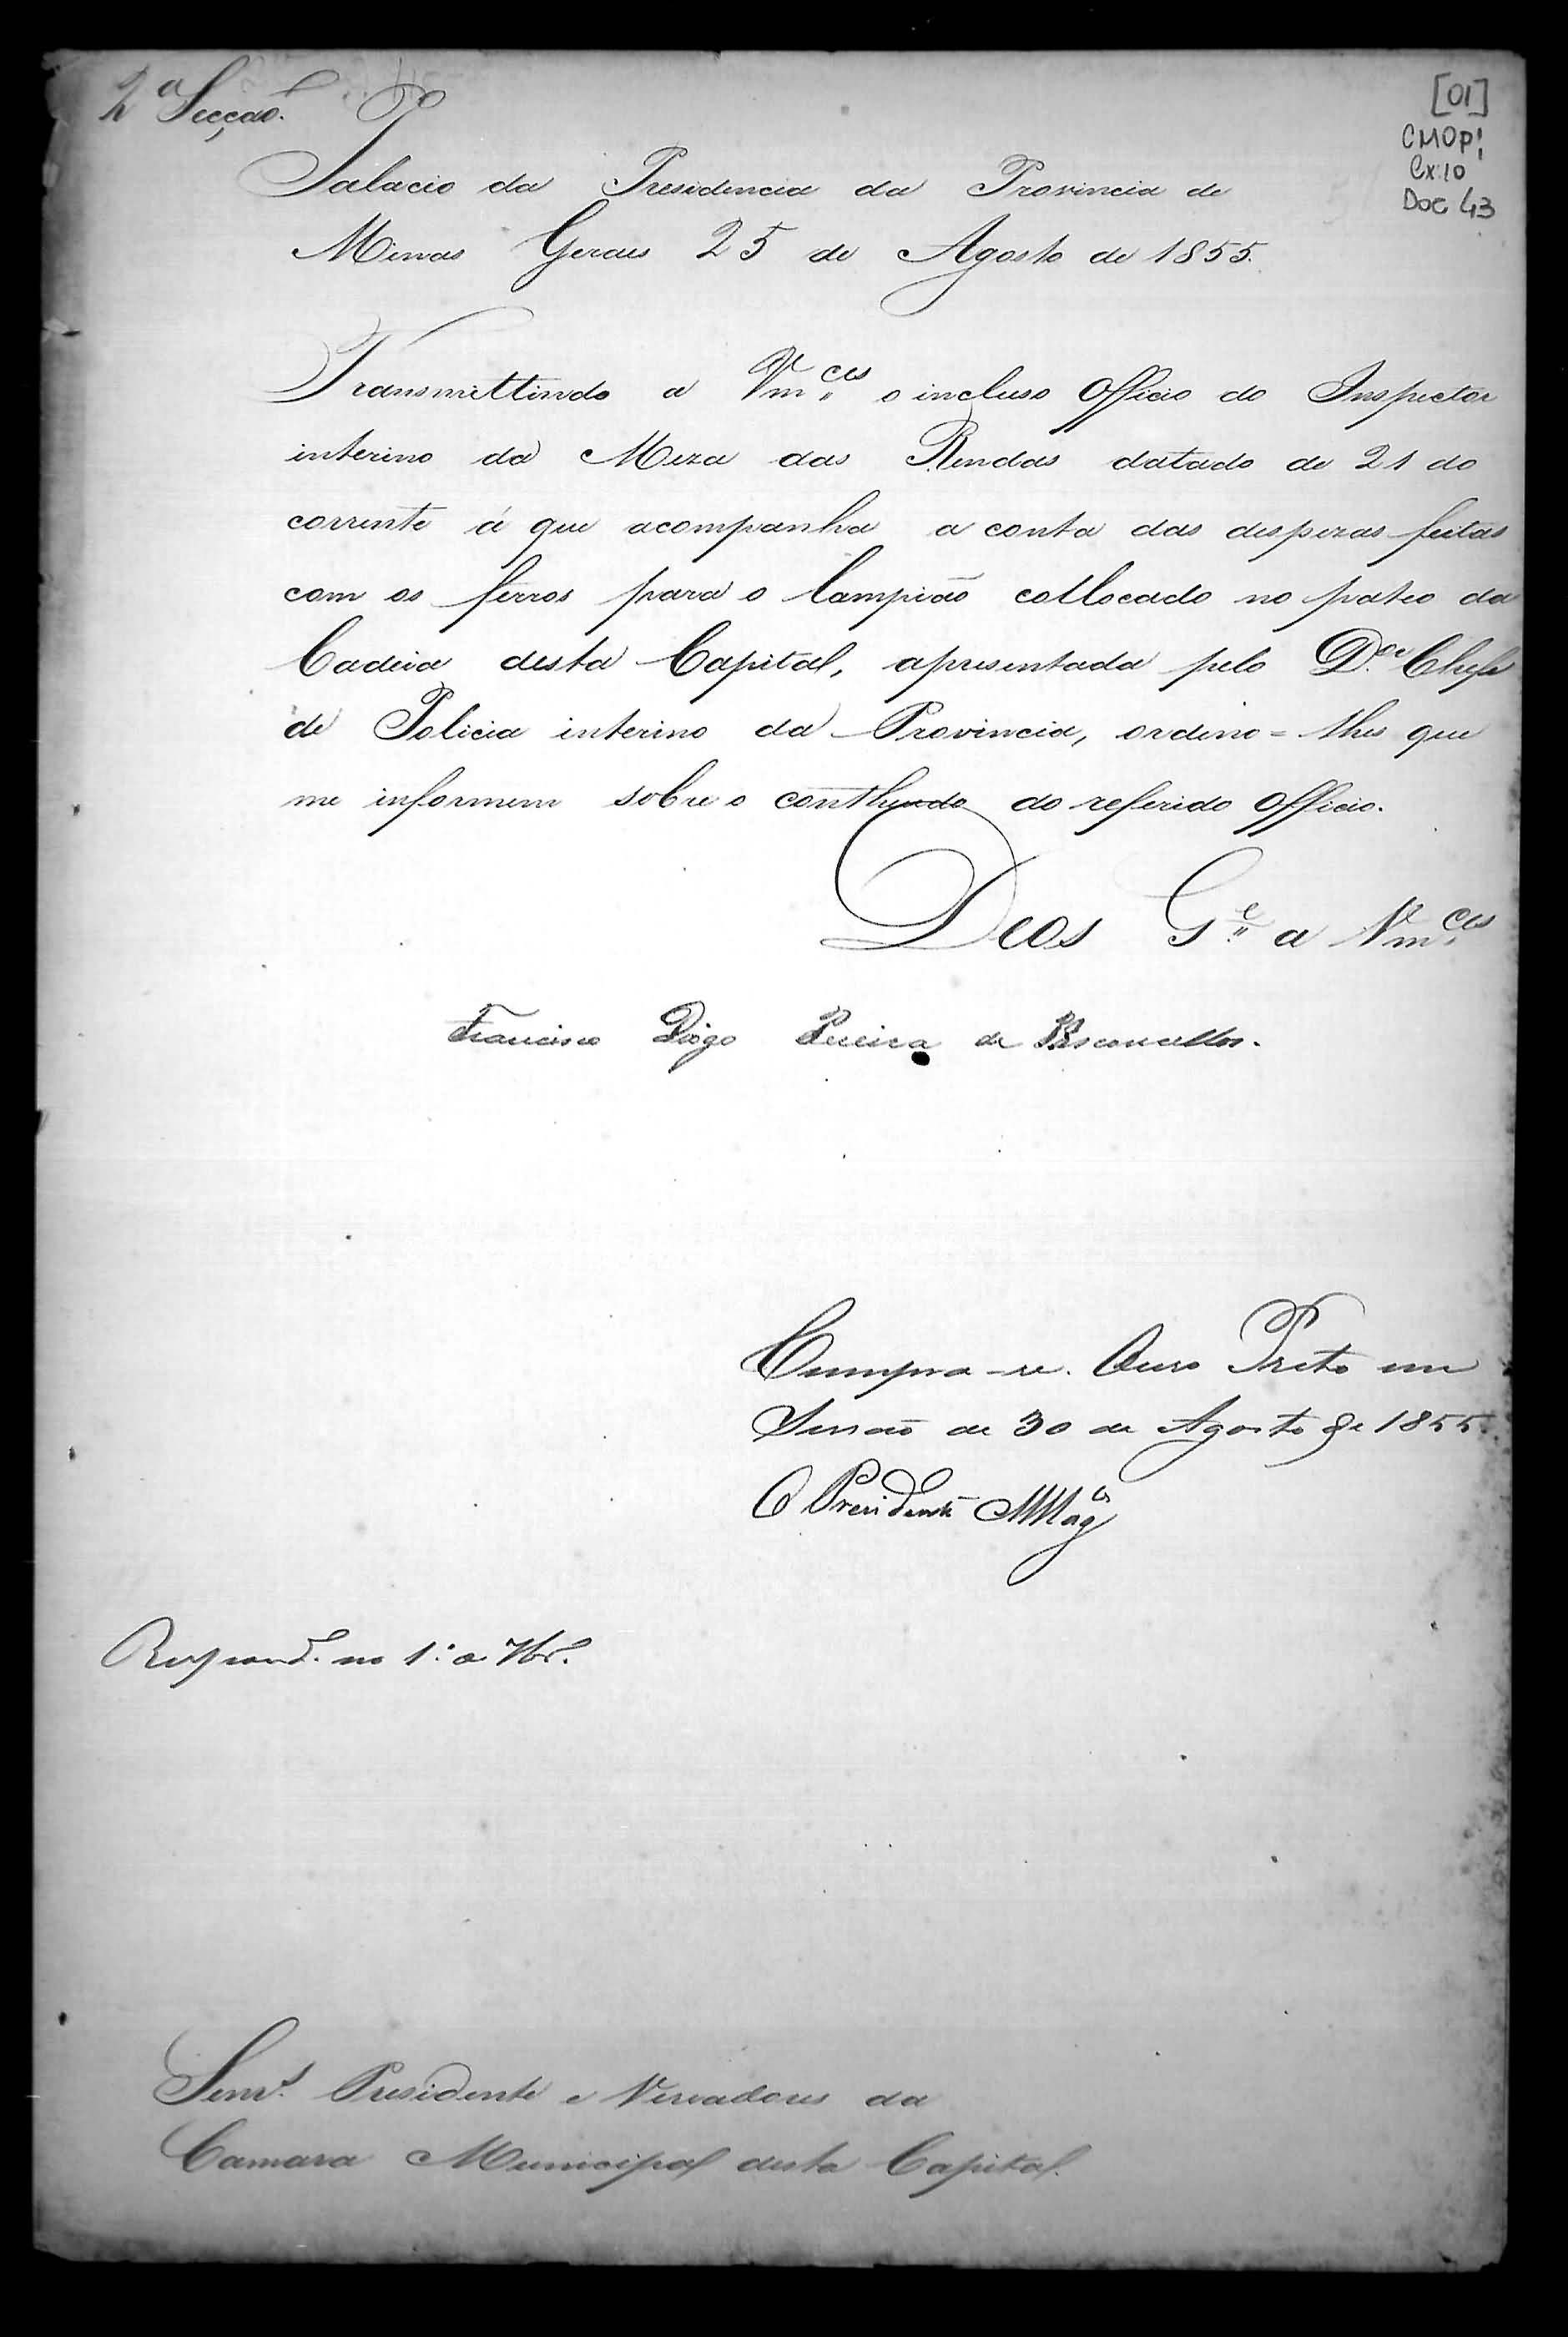 2ª Secção.
[01]
CMOP!
Cx 10
Doc 43
Palacio da Presidencia da Provincia de
Minas Geraes 25 de Agosto de 1855.
Transmittindo a Vm.ces o incluso Officio do Inspector
interino da Meza das Rendas datado de 21 do
corrente á que acompanha a conta das despezas feitas
com os ferros para o lampião collocado no pateo da
Cadeia desta Capital, apresentada pelo D.or Chefe
de Policia interino da Provincia, ordeno=lhes que
me informem sobre o contheudo do referido Officio.
Deos G.e a Vm.ces
Francisco Diogo Pereira de Vasconcellos.
Cumpra-se. Ouro Preto em
Sessão de 30 de Agosto de 1855.
O Presidente
Respond. no 1.º 7br.
Senr.s Presidente e Vereadores da
Camara Municipal desta Capital.